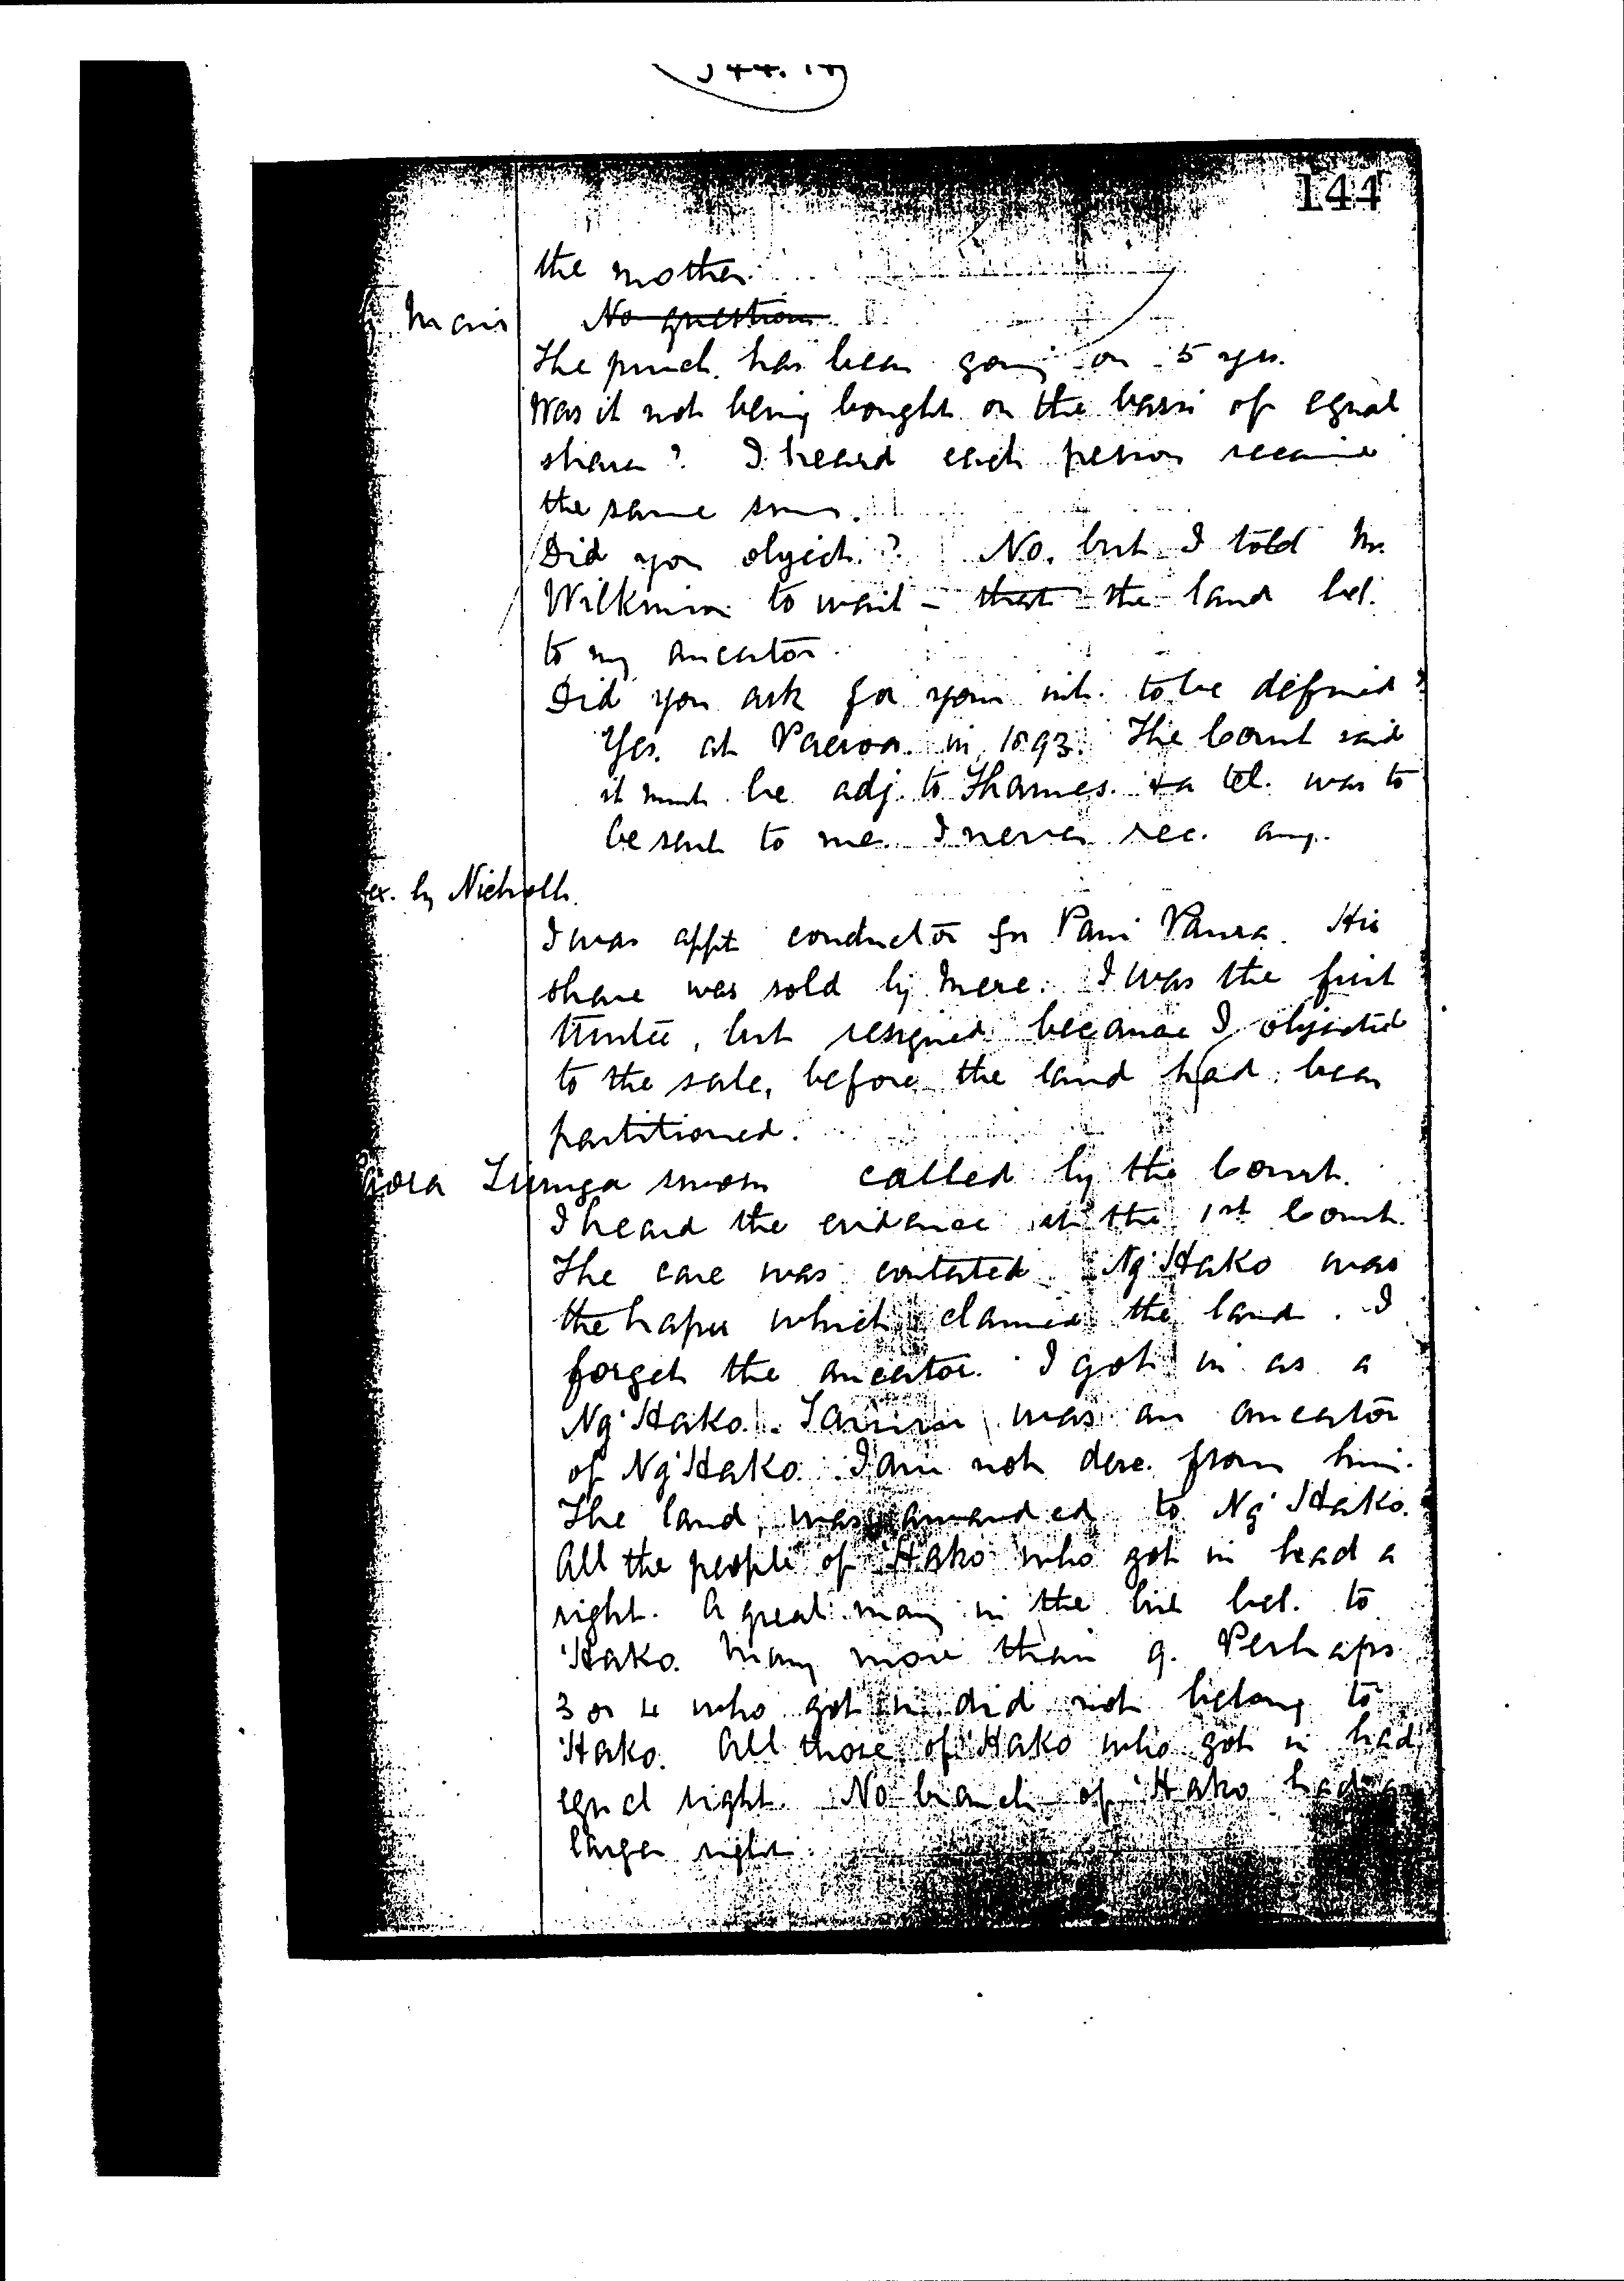 144
the mother.
Mair No question
The purch. has been going on 5 yrs.
Was it not being bought on the basis of equal
shares? I heard each person received
the same sum.
Did you object? No, but I told Mr.
Wilkinson to wait - that the land bel.
to my ancestor.
Did you ask for your int. to be defined?
Yes. at Paeroa in 1893. The Court said
it must be adj. to Thames. & a tel. was to
be sent to me. I never rec. any.
x. by Nicholls.
I was appt conductor for Pani Paura. His
share was sold by Mere. I was the first
trustee, but resigned because I objected
to the sale, before the land had been
partitioned.
sworn called by the Court.
I heard the evidence at the 1st Court.
The case was contested. Ng'Hako was
the hapu which claimed the land. I
forget the ancestor. I got in as a
Ng'Hako. was an ancestor
of Ng'Hako. I am not desc. from him.
The land was awarded to Ng'Hako.
All the people of 'Hako who got in had a
right. A great many in the list bel. to
'Hako. Many more than 9. Perhaps
3 or 4 who got in did not belong to
'Hako. All those of 'Hako who got in had
equal right. No branch of 'Hako had a
larger right.